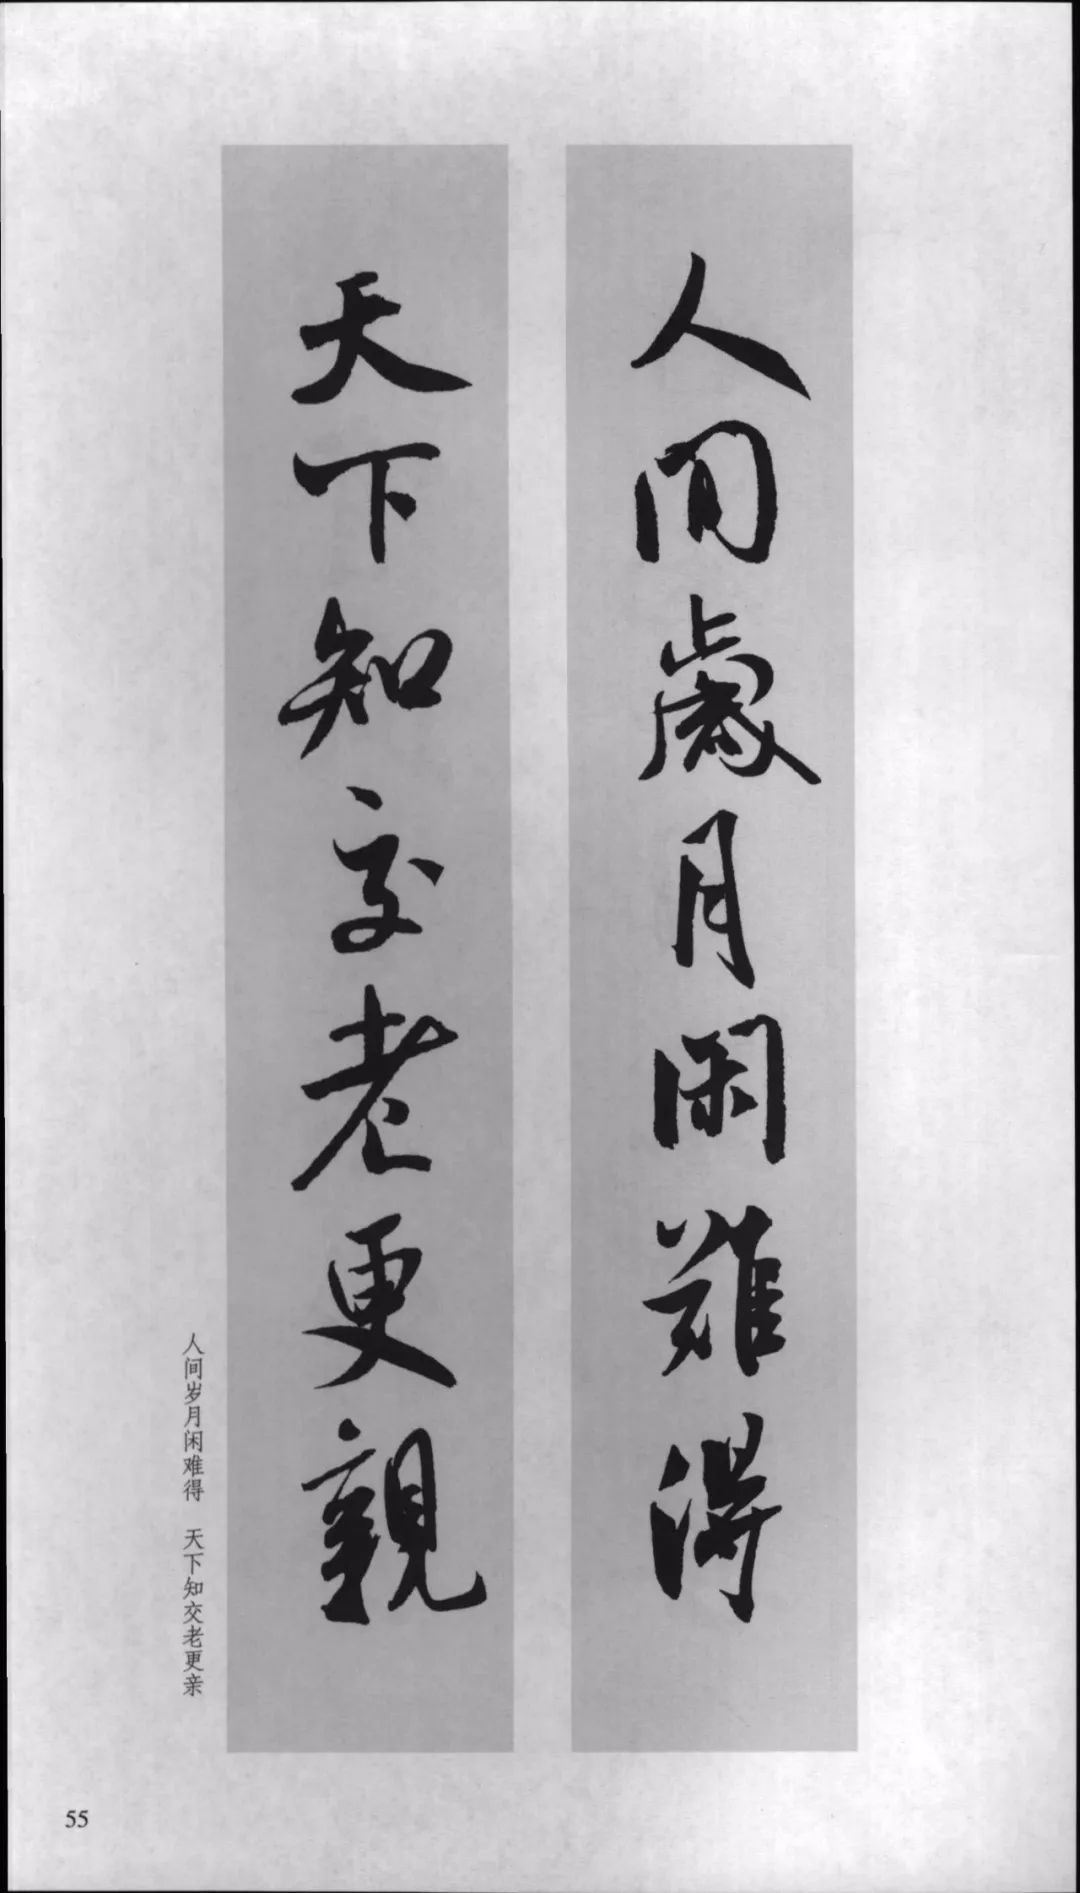 人間歲月閑難得
天下知交老更親
人间岁月闲难得 天下知交老更亲
55